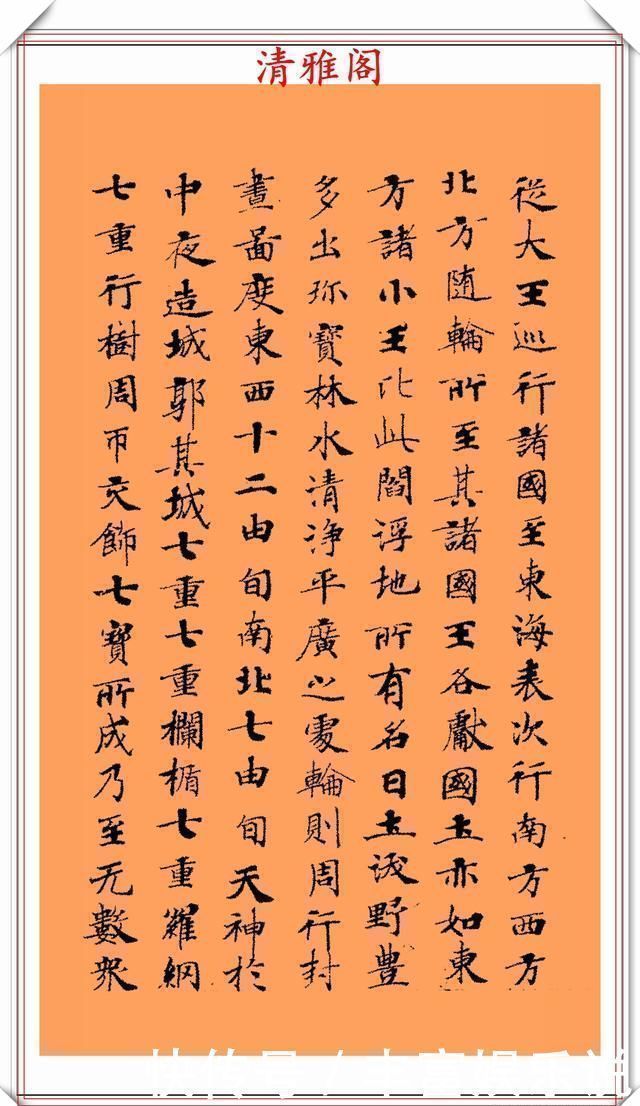 清雅阁
從大王巡行諸國至東海表次行南方西方
北方随輪所至其諸國王各獻國土亦如東
方諸小王比此閻浮地所有名曰土沃野豊
多出珎寶林水清浄平廣之處輪則周行封
畫啚度東西十二由旬南北七由旬天神於
中夜造城郭其城七重七重欄楯七重羅網
七重行樹周帀交飾七寶所成乃至无數衆
快传号 /